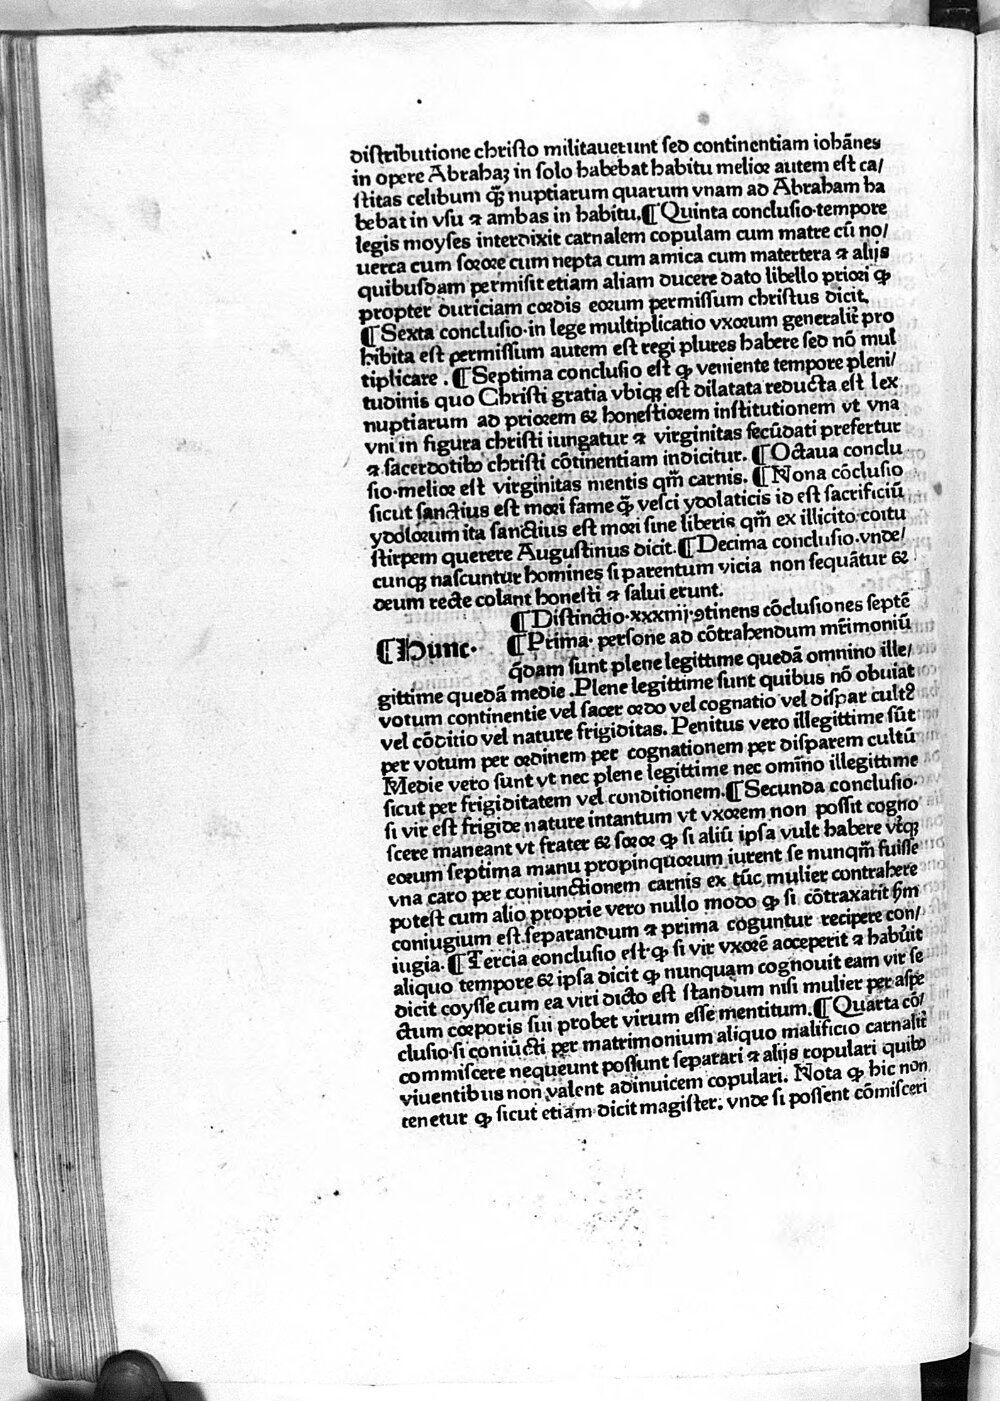 diſtributione chriſto militauerunt ſed continentiam iohānes
in opere Abrahaʒ in ſolo habebat habitu melioꝛ autem eſt ca/
ſtitas celibum qꝫ nuptiarum quarum vnam ad Abraham ha
bebat in vſu ⁊ ambas in habitu.¶Quinta concluſio·tempore
legis moyſes interdixit carnalem copulam cum matre cū no/
uerca cum ſoꝛoꝛe cum nepta cum amica cum matertera ⁊ alijs
quibuſdam permiſit etiam aliam ducere dato libello prioꝛi ꝙ
propter duriciam coꝛdis eoꝛum permiſſum chriſtus dicit.
¶Sexta concluſio·in lege multiplicatio vxoꝛum generalīt pro
hibita eſt permiſſum autem eſt regi plures habere ſed nō mul
tiplicare . ¶Septima concluſio eſt ꝙ veniente tempore pleni/
tudinis quo Chriſti gratia vbiqꝫ eſt dilatata reducta eſt lex
nuptiarum ad prioꝛem ⁊ honeſtioꝛem inſtitutionem vt vna
vni in figura chriſti iungatur ⁊ virginitas fecūdati prefertur
⁊ ſacerdotibꝰ chriſti cōtinentiam indicitur. ¶Octaua conclu
ſio·melioꝛ eſt virginitas mentis qm̄ carnis. ¶Nona cōcluſio
ſicut ſanctius eſt moꝛi fame qꝫ veſci ydolaticis id eſt ſacrificiū
ydoloꝛum ita ſanctius eſt moꝛi ſine liberis qm̄ ex illicito coitu
ſtirpem querere Auguſtinus dicit.¶Decima concluſio.vnde/
cunqꝫ naſcuntur homines ſi parentum vicia non ſequātur ⁊
deum recte colant honeſti ⁊ ſalui erunt.
¶Diſtinctio·xxxiiij·ꝯtinens cōcluſiones ſeptē
¶Hunc· ¶Prima· perſone ad cōtrahendum mr̄imoniū
q̄dam ſunt plene legittime quedā omnino ille/
gittime quedā medie .Plene legittime ſunt quibus nō obuiat
votum continentie vel ſacer oꝛdo vel cognatio vel diſpar cultꝰ
vel cōditio vel nature frigiditas. Penitus vero illegittime ſūt
per votum per oꝛdinem per cognationem per diſparem cultū
Medie vero ſunt vt nec plene legittime nec omīno illegittime
ſicut per frigiditatem vel conditionem.¶Secunda concluſio·
ſi vir eſt frigide nature intantum vt vxoꝛem non poſſit cogno
ſcere maneant vt frater ⁊ ſoꝛoꝛ ꝙ ſi aliū ipſa vult habere vtqꝫ
eoꝛum ſeptima manu propinquoꝛum iurent ſe nunqm̄ fuiſſe
vna caro per coniunctionem carnis ex tūc mulier contrahere
poteſt cum alio proprie vero nullo modo ꝙ ſi cōtraxarit hm̄
coniugium eſt ſeparandum ⁊ prima coguntur recipere con/
iugia.¶Tercia eoncluſio eſt·ꝙ ſi vir vxoꝛē acceperit ⁊ habuit
aliquo tempore ⁊ ipſa dicit ꝙ nunquam cognouit eam vir ſe
dicit coyſſe cum ea viri dicto eſt ſtandum niſi mulier per aſpe
ctum coꝛporis ſui probet virum eſſe mentitum.¶Quarta cō/
cluſio·ſi coniūcti per matrimonium aliquo malificio carnalīt
commiſcere nequeunt poſſunt ſeparari ⁊ alijs copulari quibꝰ
viuentibus non valent adinuicem copulari. Nota ꝙ hic non
tenetur ꝙ ſicut etiam dicit magiſter. vnde ſi poſſent cōmiſceri